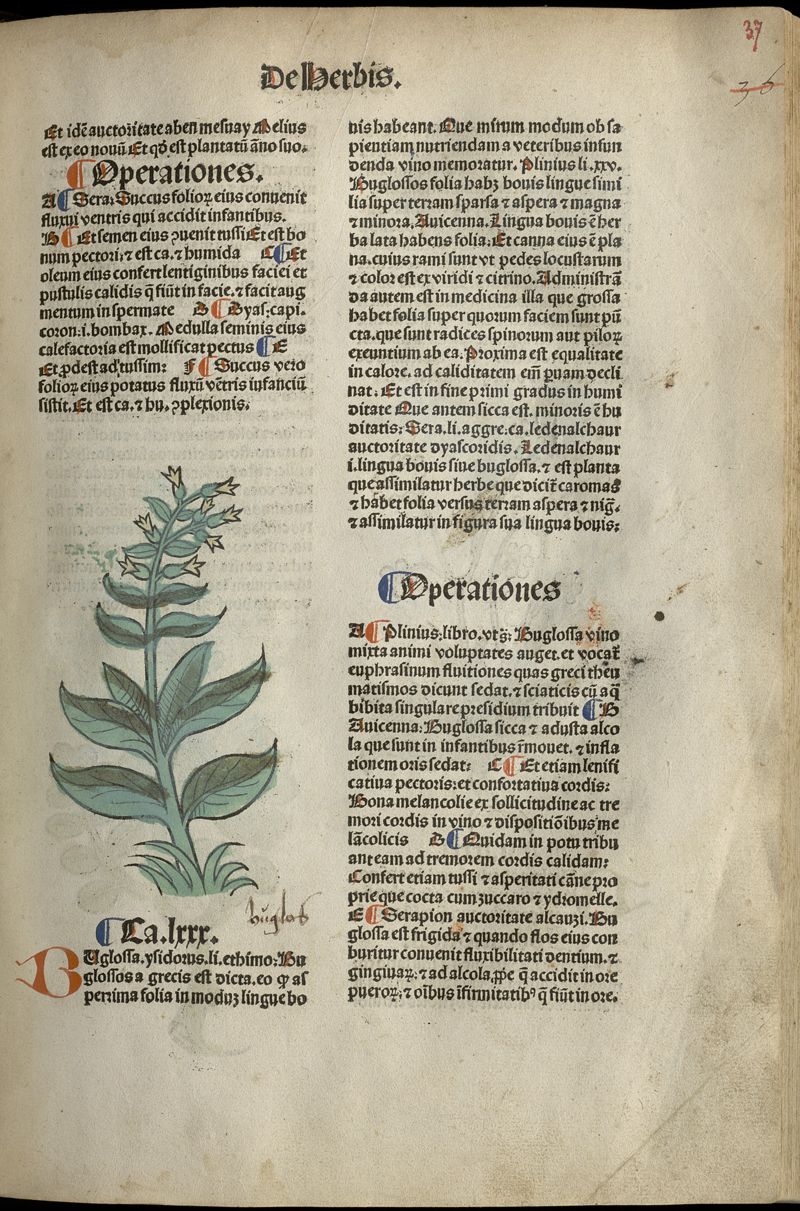 37
36
De Herbis.
Et idē auctoritate aben mesuay Melius
est ex eo nouū. Et qđ est plantatū āno suo.
¶ Operationes.
A ¶ Sera. Succus folioꝝ eius conuenit
fluxui ventris qui accidit infantibus.
B ¶ Et semen eius ꝯuenit tussi Et est bo
num pectori, ⁊ est ca. ⁊ humida C ¶ Et
oleum eius confert lentiginibus faciei et
pustulis calidis q̄ fiūt in facie. ⁊ facit aug
mentum in spermate D ¶ Dyas. capi.
coron. i. bombax. Medulla seminis eius
calefactoria est mollificat pectus ¶ E
Et ꝓdest ad tussim: F ¶ Succus vero
folioꝝ eius potatus fluxū vētris infanciū
sistit. Et est ca. ⁊ hu. ꝯplexionis.
buglos
¶ Ca. lxxx.
BUglossa. ysidorus. li. ethimo: Bu
glossos a grecis est dicta. eo ꝙ as
perrima folia in moduꝫ lingue bo
uis habeant. Que mirum modum ob sa
pientiam nutriendam a veteribus infun
denda vino memoratur. Plinius li. xxv.
Buglossos folia habꝫ bouis lingue simi
lia super terram sparsa ⁊ aspera ⁊ magna
⁊ minora. Auicenna. Lingua bouis ē her
ba lata habens folia. Et canna eius ē pla
na. cuius rami sunt vt pedes locustarum
⁊ color est ex viridi ⁊ citrino. Administrā
da autem est in medicina illa que grossa
habet folia super quorum faciem sunt pū
cta. que sunt radices spinorum aut piloꝝ
exeuntium ab ea. Proxima est equalitate
in calore. ad caliditatem eiñ ꝑuam decli
nat. Et est in fine primi gradus in humi
ditate Que antem sicca est. minoris ē hu
ditatis: Sera. li. aggre. ca. ledenalchaur
auctoritate dyascoridis. Ledenalchaur
i. lingua bouis siue buglossa. ⁊ est planta
que assimilatur herbe que dicit̄ caromas
⁊ habet folia versus terram aspera ⁊ nig̃.
⁊ assimilatur in figura sua lingua bouis:
¶ Operationes
A ¶ Plinius. libro. vt ſ: Buglossa vino
mixta animi voluptates auget. et vocat̄
euphrasinum fluitiones quas greci theu
matismos dicunt sedat. ⁊ sciaticis cū aq̄
bibita singulare presidium tribuit ¶ B
Auicenna: Buglossa sicca ⁊ adusta alco
la que sunt in infantibus r̄mouet. ⁊ infla
tionem oris sedat: C ¶ Et etiam lenifi
catiua pectoris: et confortatiua cordis:
Bona melancolie ex sollicitudine ac tre
mori cordis in vino ⁊ dispositiōibus me
lācolicis D ¶ Quidam in potu tribu
ant eam ad tremorem cordis calidam:
Confert etiam tussi ⁊ asperitati cāne pro
prie que cocta cum zuccaro ⁊ ydromelle.
E ¶ Serapion auctoritate alcauzi. Bu
glossa est frigida ⁊ quando flos eius con
buritur conuenit fluxibilitati dentium. ⁊
gingiuaꝝ. ⁊ ad alcola. ꝓpe q̄ accidit in ore
pueroꝝ. ⁊ oībus īfirmitatibꝰ q̄ fiūt in ore.